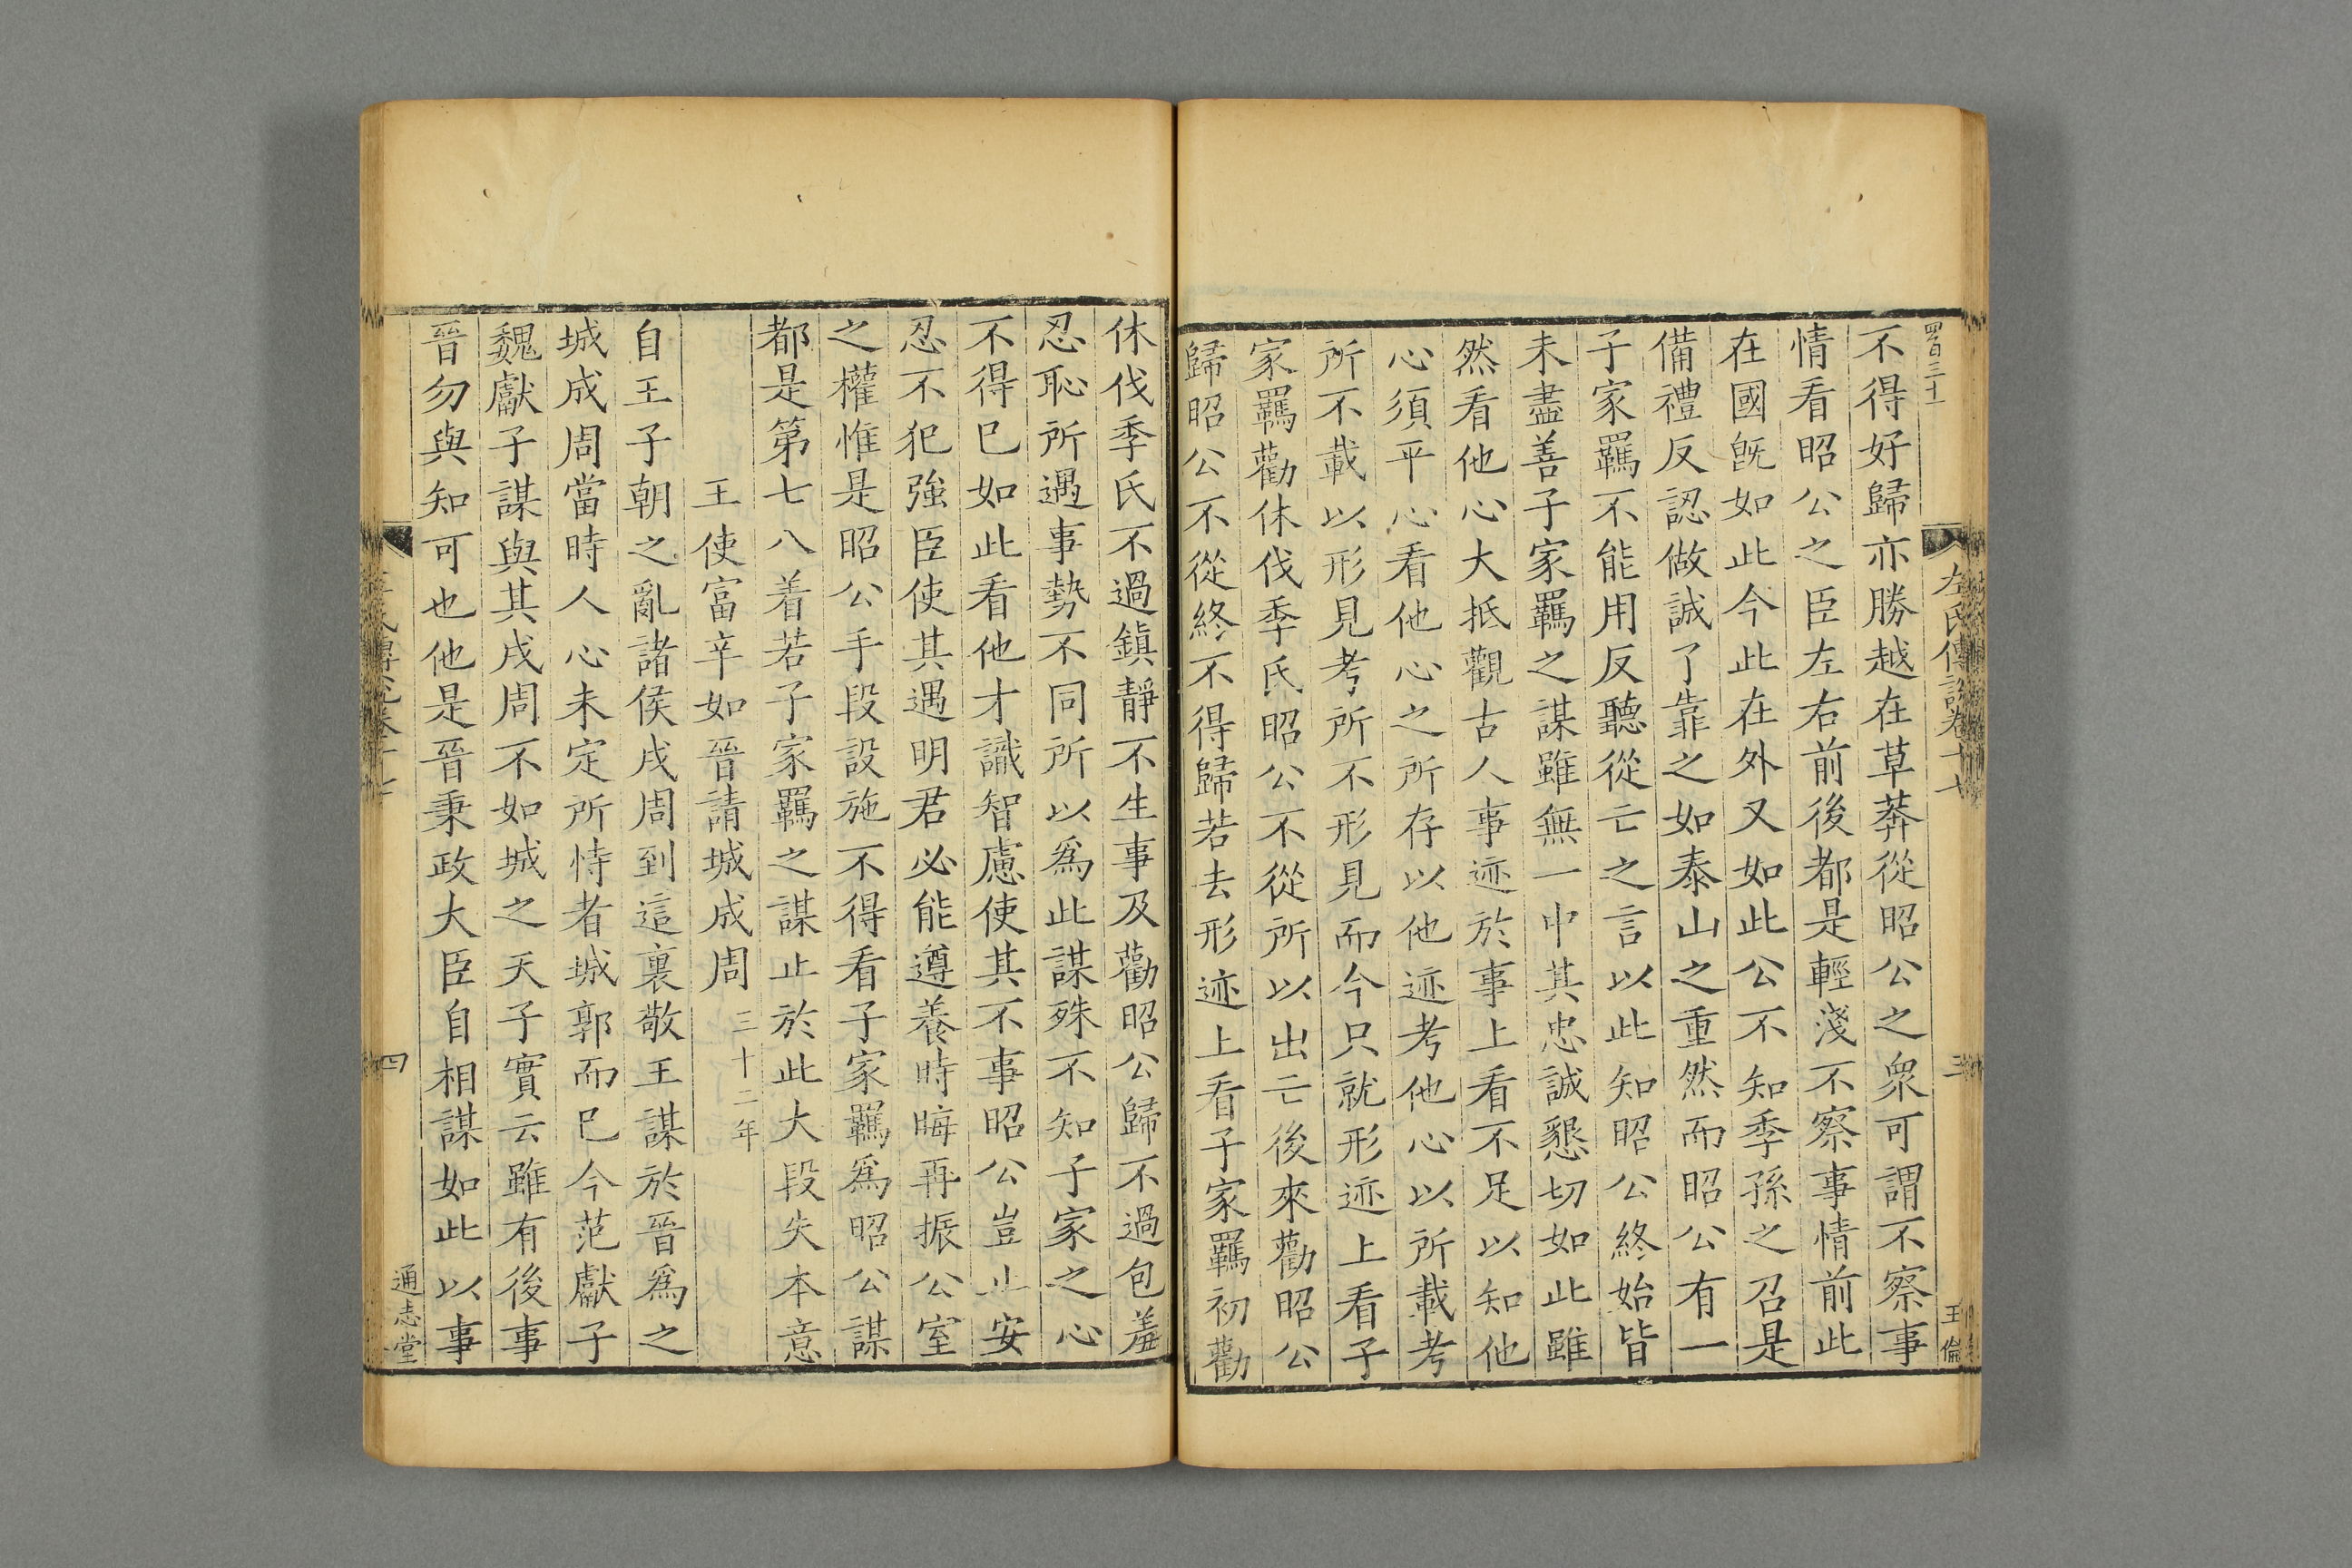 四百三十一
左氏傳說卷十七
三
王倫
不得好歸亦勝越在草莽從昭公之衆可謂不察事
情看昭公之臣左右前後都是輕淺不察事情前此
在國旣如此今此在外又如此公不知季孫之召是
備禮反認做誠了靠之如泰山之重然而昭公有一
子家羈不能用反聽從亡之言以此知昭公終始皆
未盡善子家羈之謀雖無一中其忠誠懇切如此雖
然看他心大抵觀古人事迹於事上看不足以知他
心須平心看他心之所存以他迹考他心以所載考
所不載以形見考所不形見而今只就形迹上看子
家羈勸休伐季氏昭公不從所以出亡後來勸昭公
歸昭公不從終不得歸若去形迹上看子家羈初勸
休伐季氏不過鎮靜不生事及勸昭公歸不過包羞
忍恥所遇事勢不同所以爲此謀殊不知子家之心
不得已如此看他才識智慮使其不事昭公豈止安
忍不犯強臣使其遇明君必能遵養時晦再振公室
之權惟是昭公手段設施不得看子家羈爲昭公謀
都是第七八着若子家羈之謀止於此大段失本意
王使富辛如晉請城成周 三十二年
自王子朝之亂諸侯戍周到這裏敬王謀於晉爲之
城成周當時人心未定所恃者城郭而已今范獻子
魏獻子謀與其戍周不如城之天子實云雖有後事
晉勿與知可也他是晉秉政大臣自相謀如此以事
四
通志堂